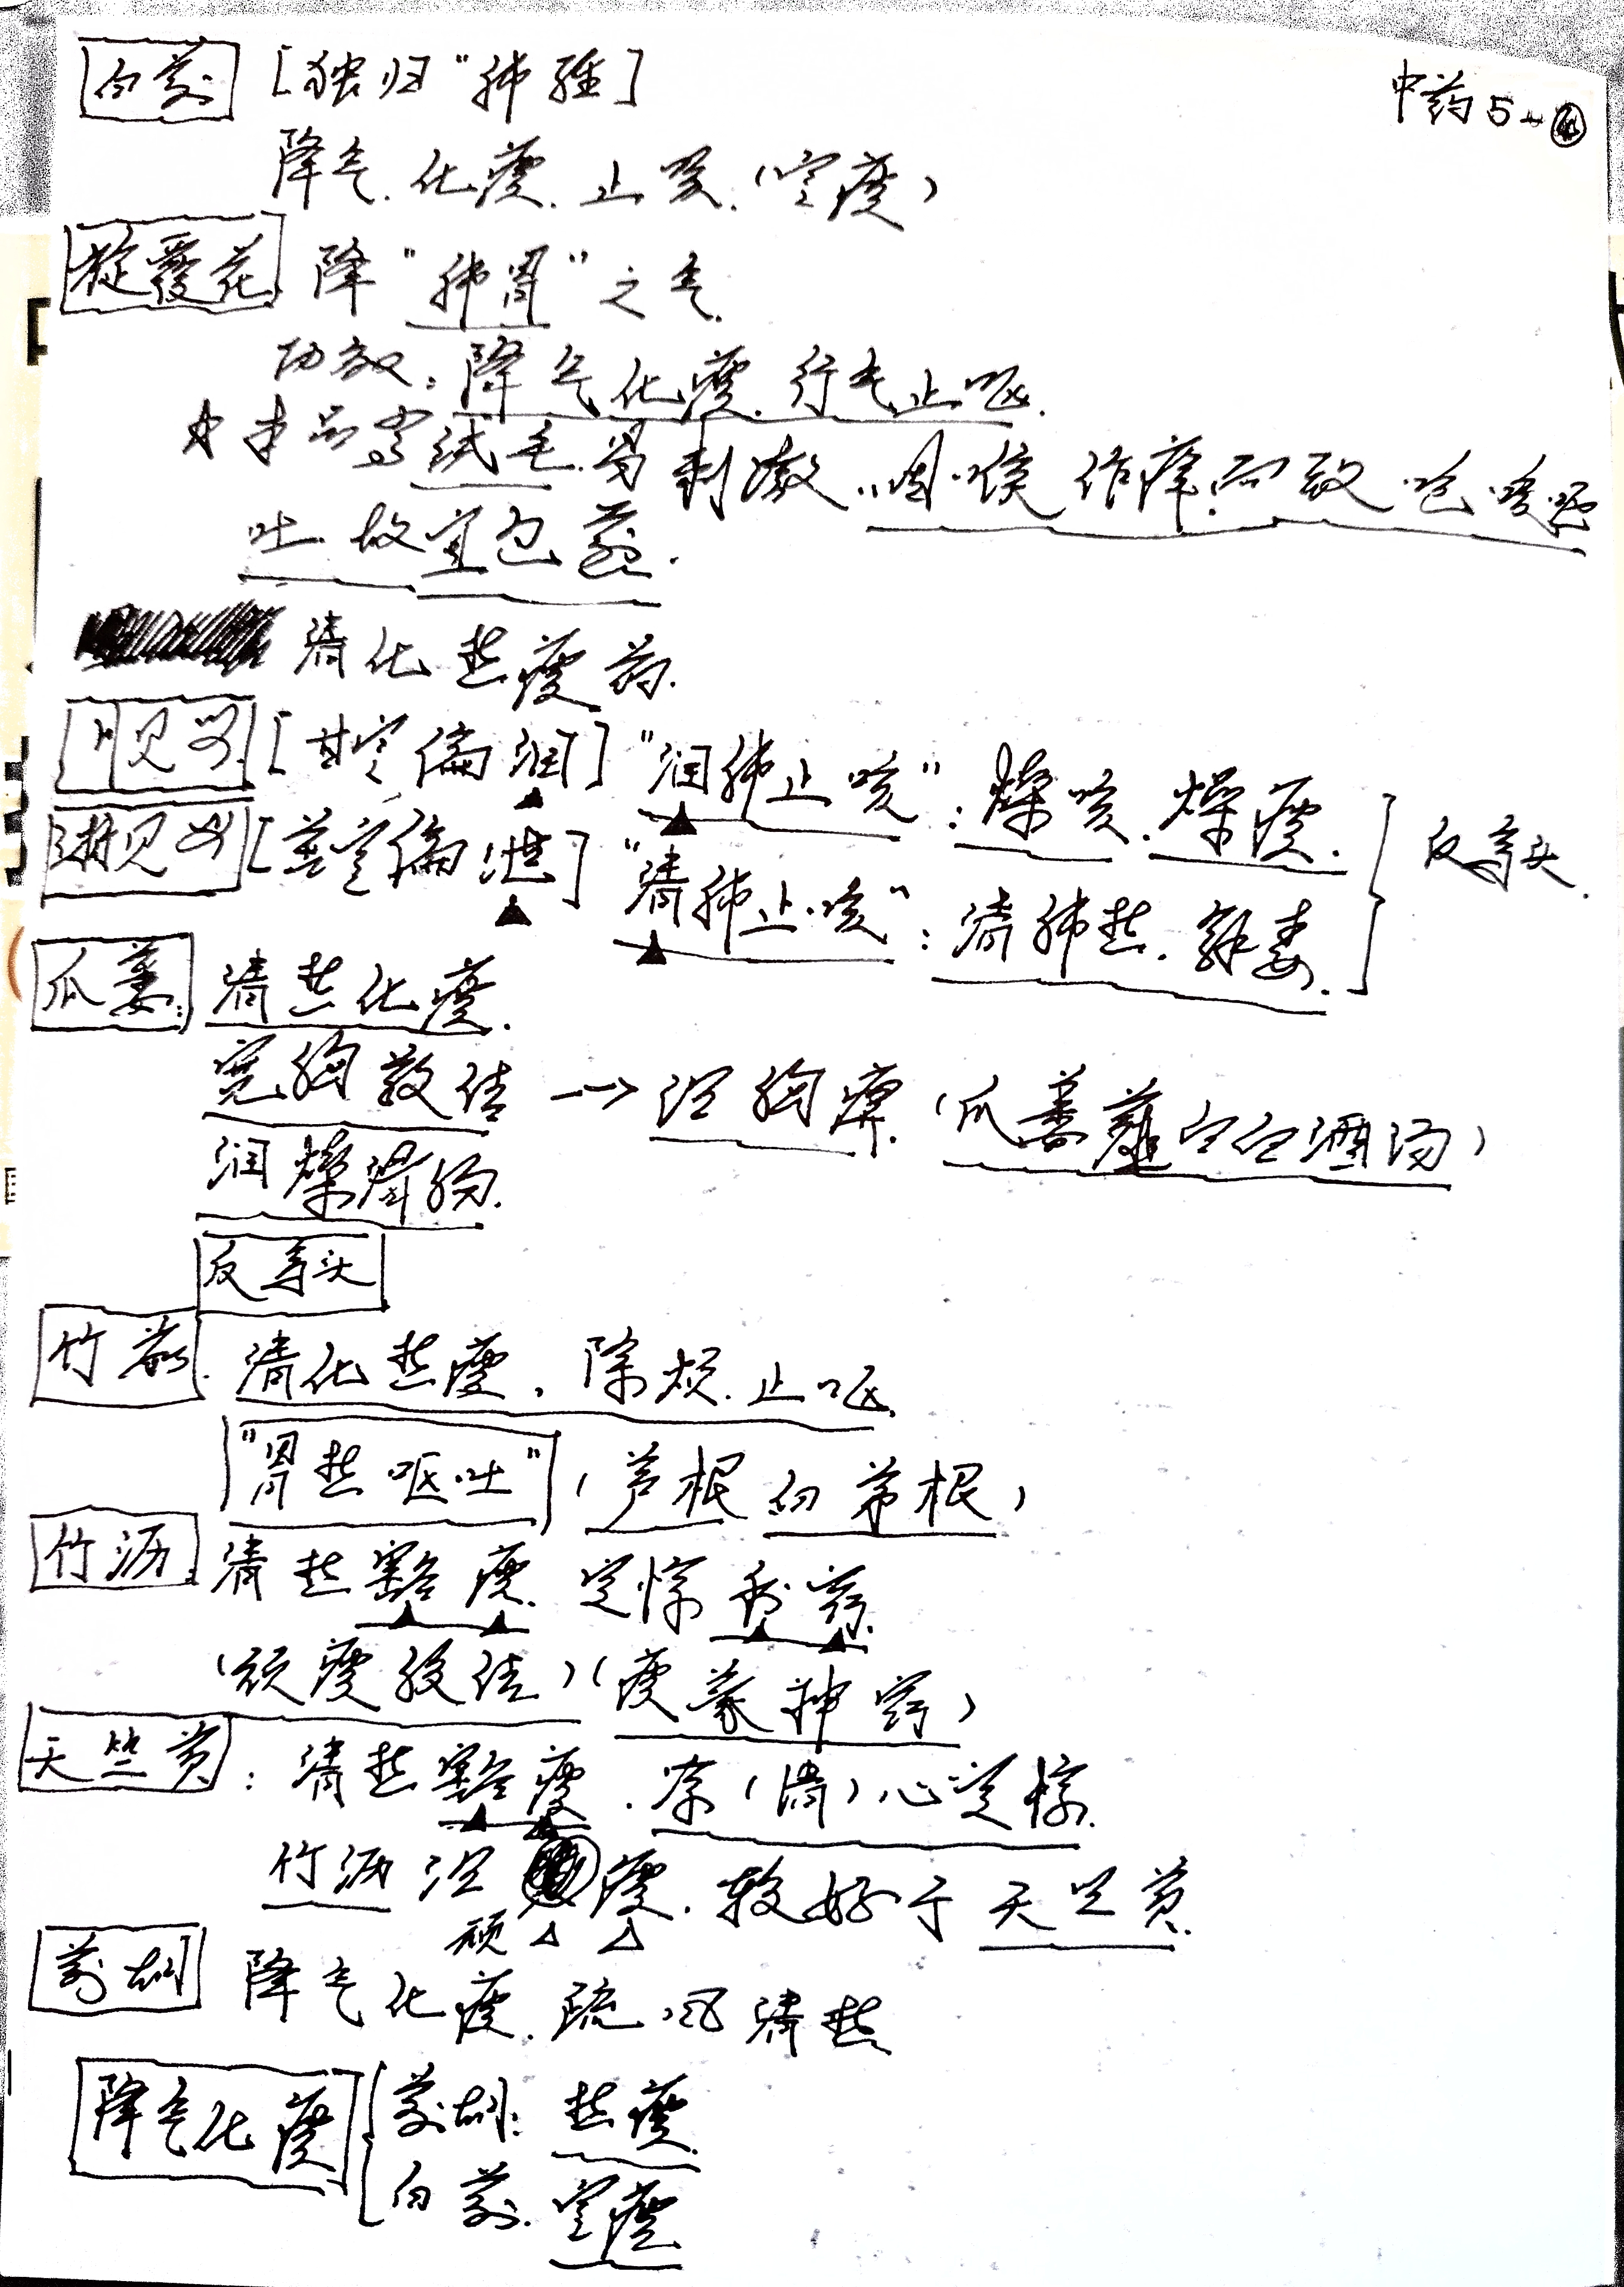 中药5-④
白前 [独归"肺经]
降气.化痰.止咳.(寒痰)
旋覆花 降"肺胃"之气.
功效:降气化痰.行气止呕.
☆本品富绒毛.易刺激咽喉作痒.而致呛咳呕
吐.故宜包煎.
清化热痰药.
川贝母 [甘寒偏润] "润肺止咳":燥咳.燥痰.
浙贝母 [苦寒偏泄] "清肺止咳":清肺热.
反乌头.
瓜蒌: 清热化痰.
宽胸散结 → 治胸痹.(瓜蒌薤白白酒汤)
润燥滑肠.
反乌头
竹茹. 清化热痰.除烦.止呕.
"胃热呕吐" (芦根 白茅根)
竹沥. 清热豁痰.定惊利窍.
(顽痰胶结)(痰蒙神窍)
天竺黄:清热豁痰.凉(清)心定惊.
竹沥治顽痰.较好于天竺黄.
前胡 降气化痰.疏风清热
降气化痰 { 前胡:热痰.
白前.寒痰